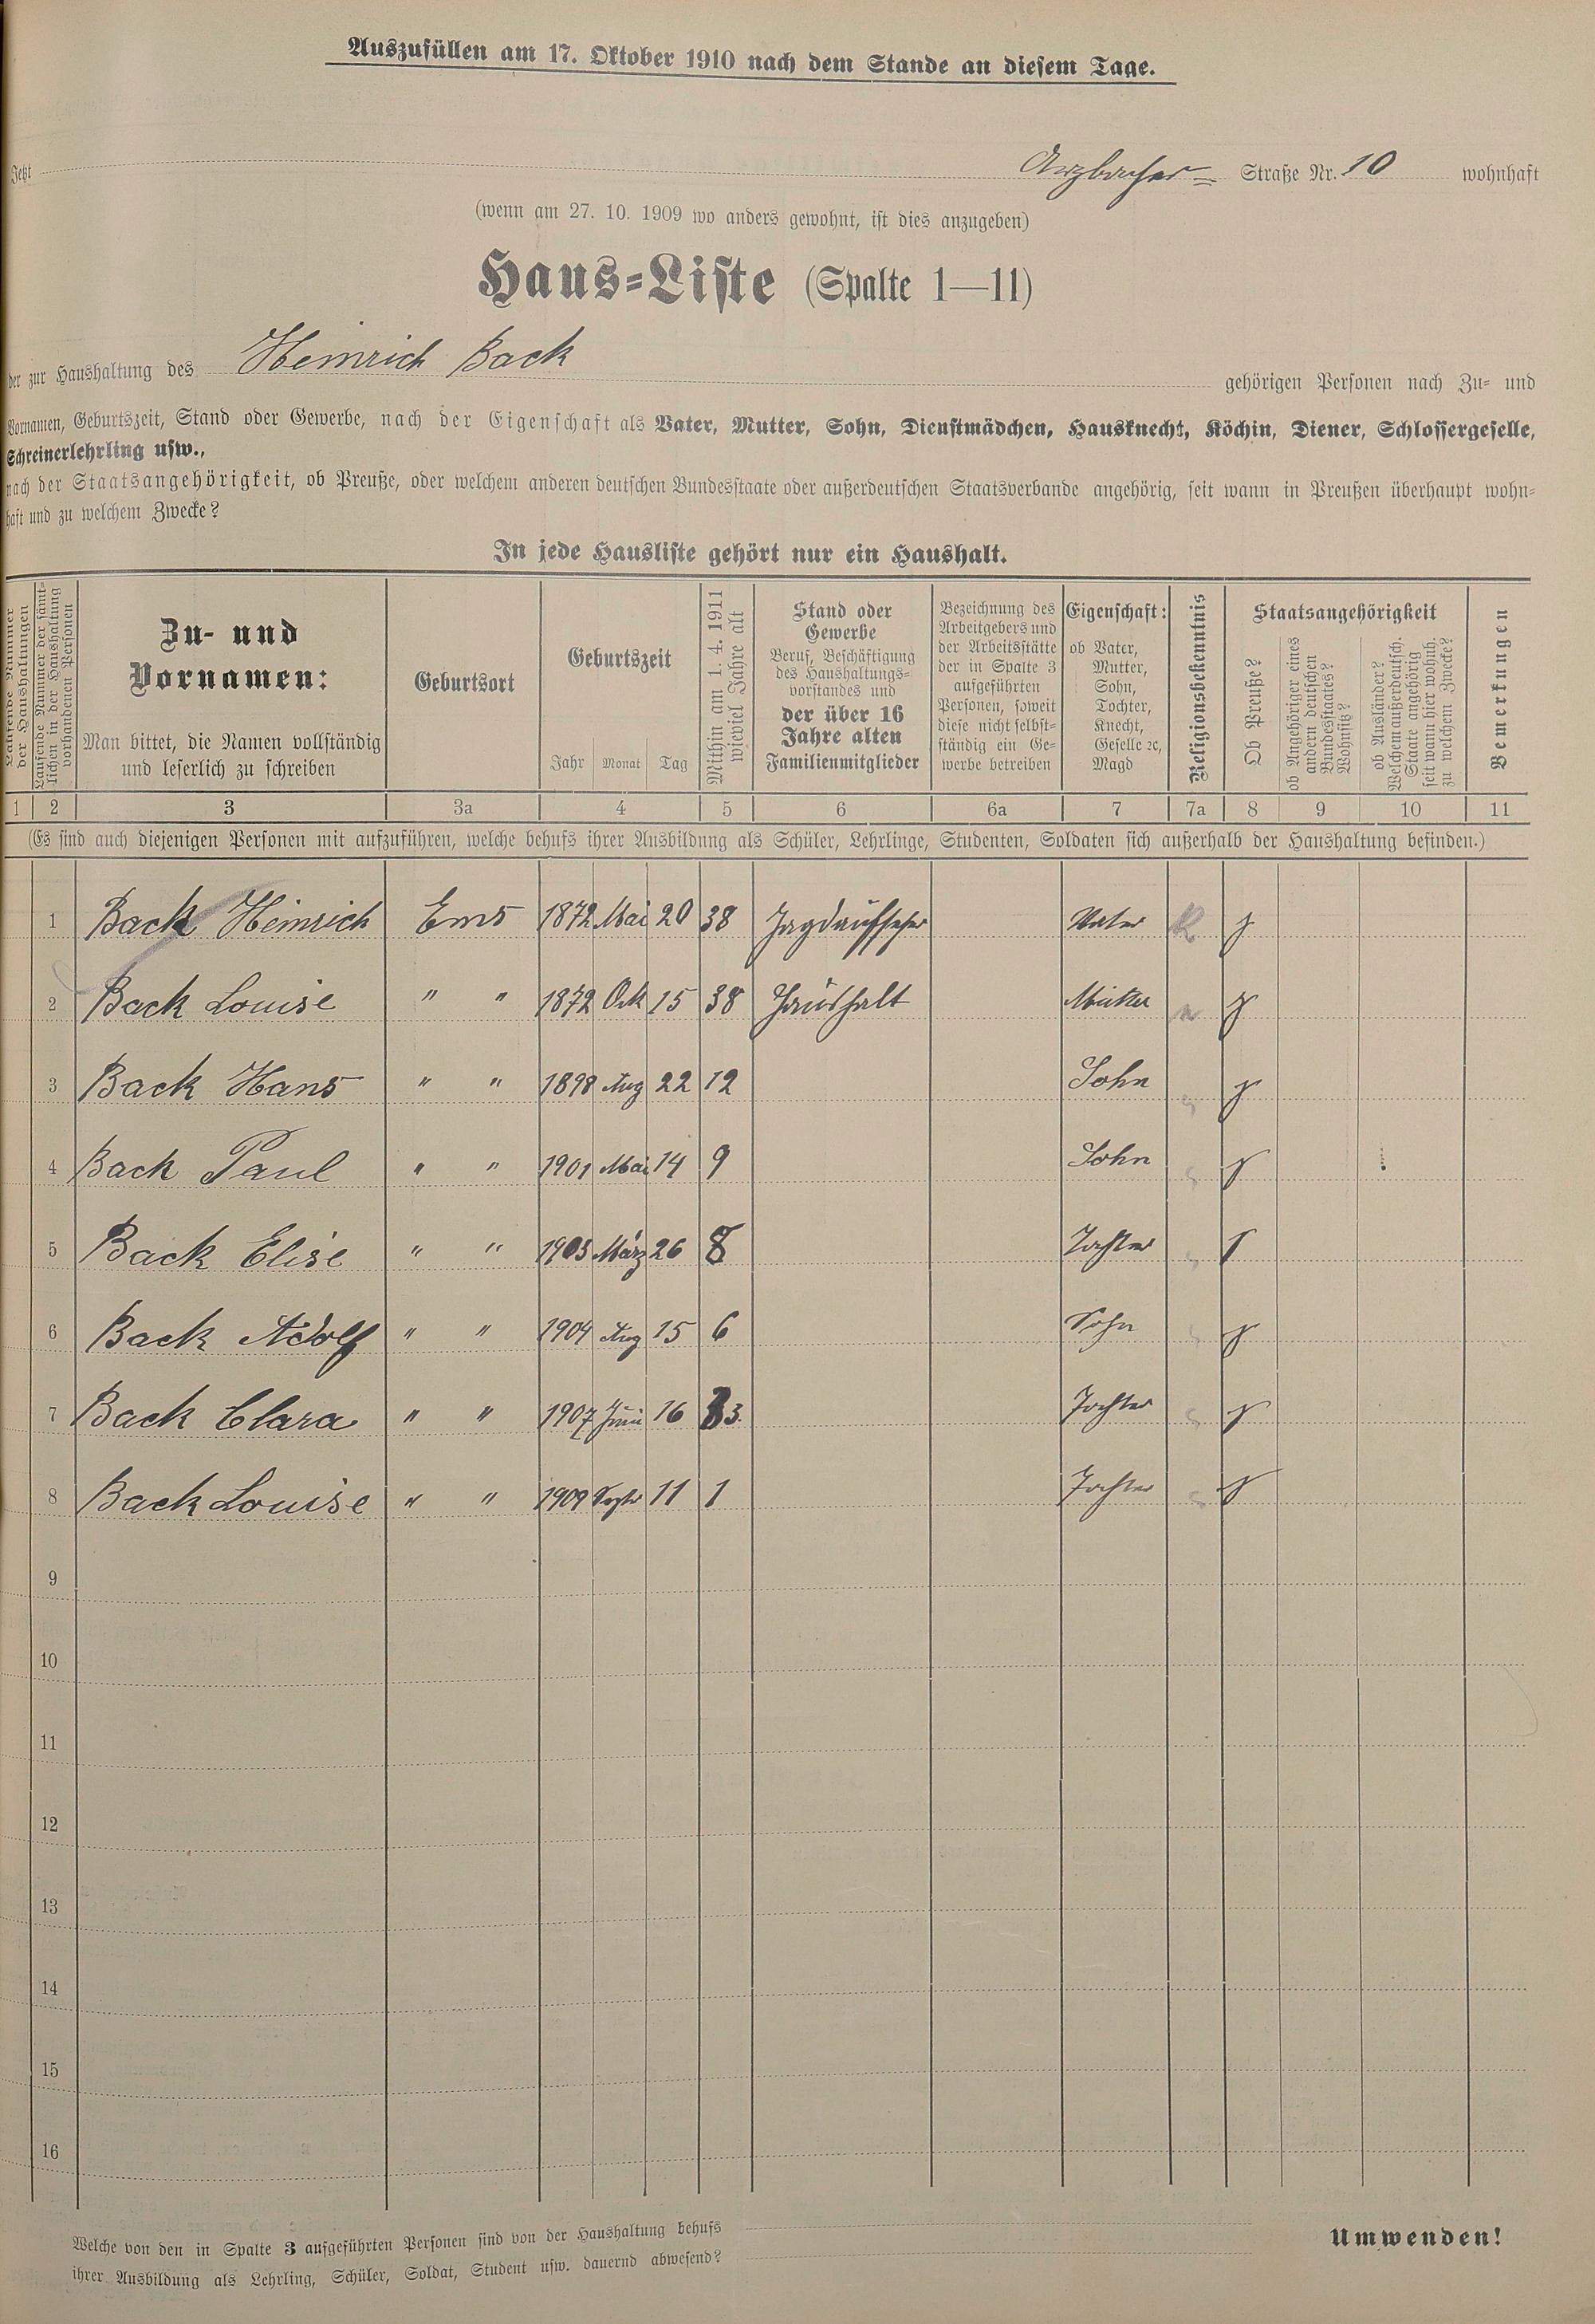 Auszufüllen am 17. Oktober 1910 nach dem Stande an diesem Tage.
Jetzt Arzbacher= Straße Nr. 10 wohnhaft
(wenn am 27. 10. 1909 wo anders gewohnt, ist dies anzugeben)
Haus=Liste (Spalte 1—11)
der zur Haushaltung des Heinrich Back gehörigen Personen nach Zu= und
Vornamen, Geburtszeit, Stand oder Gewerbe, nach der Eigenschaft als Vater, Mutter, Sohn, Dienstmädchen, Hausknecht, Köchin, Diener, Schlossergeselle,
Schreinerlehrling usw.,
nach der Staatsangehörigkeit, ob Preuße, oder welchem anderen deutschen Bundesstaate oder außerdeutschen Staatsverbande angehörig, seit wann in Preußen überhaupt wohn=
haft und zu welchem Zwecke?
In jede Hausliste gehört nur ein Haushalt.
Laufende Nummer
der Haushaltungen
Laufende Nummer der sämt=
lichen in der Haushaltung
vorhandenen Personen
Zu- und
Vornamen:
Man bittet, die Namen vollständig
und leserlich zu schreiben
Geburtsort
Geburtszeit
Jahr Monat Tag
Mithin am 1. 4. 1911
wieviel Jahre alt
Stand oder
Gewerbe
Beruf, Beschäftigung
des Haushaltungs=
vorstandes und
der über 16
Jahre alten
Familienmitglieder
Bezeichnung des
Arbeitgebers und
der Arbeitsstätte
der in Spalte 3
aufgeführten
Personen, soweit
diese nicht selbst=
ständig ein Ge=
werbe betreiben
Eigenschaft:
ob Vater,
Mutter,
Sohn,
Tochter,
Knecht,
Geselle ꝛc,
Magd
Religionsbekenntnis
Staatsangehörigkeit
Ob Preuße?
ob Angehöriger eines
andern deutschen
Bundesstaates?
Wohnsitz?
ob Ausländer?
Welchem außerdeutsch.
Staate angehörig
seit wann hier wohnh.
zu welchem Zwecke?
Bemerkungen
1 2 3 3a 4 5 6 6a 7 7a 8 9 10 11
(Es sind auch diejenigen Personen mit aufzuführen, welche behufs ihrer Ausbildung als Schüler, Lehrlinge, Studenten, Soldaten sich außerhalb der Haushaltung befinden.)
1 Back Heinrich Ems 1872 Mai 20 38 Jagdaufseher Vater k j
2 Back Louise " " 1872 Ock 15 38 Haushalt Mutter j
3 Back Hans " " 1898 Aug 22 12 Sohn j
4 Back Paul " " 1901 Mai 14 9 Sohn j
5 Back Elise " " 1903 März 26 8 Tochter
6 Back Adolf " " 1904 Aug 15 6 Sohn j
7 Back Clara " " 1907 Juni 16 3. Tochter j
8 Back Louise " " 1909 Septr 11 1 Tochter j
9
10
11
12
13
14
15
16
Welche von den in Spalte 3 aufgeführten Personen sind von der Haushaltung behufs
ihrer Ausbildung als Lehrling, Schüler, Soldat, Student usw. dauernd abwesend?
Umwenden!